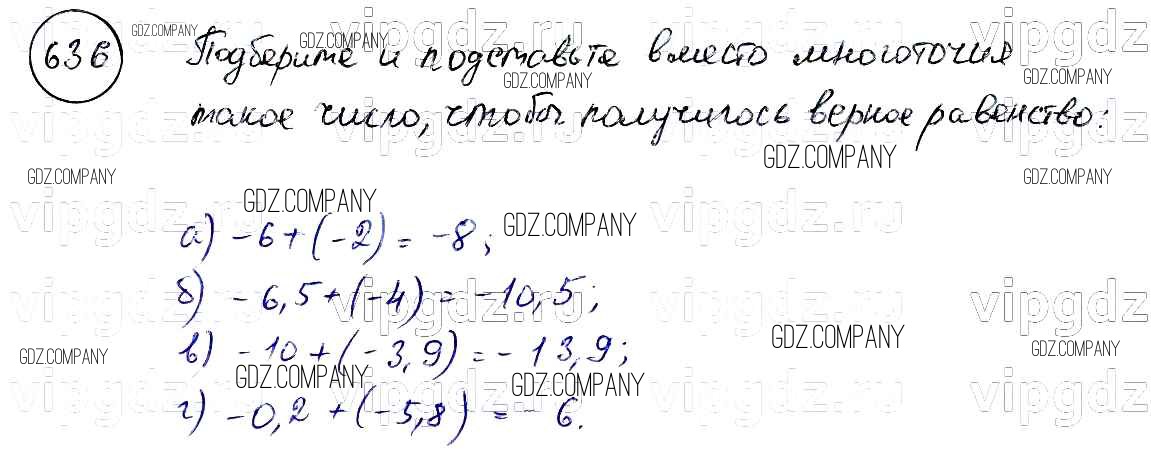 636 Подберите и подставьте вместо многоточия
такое число, чтобы получилось верное равенство:
а) -6+(-2) = -8;
б) -6,5+(-4) = -10,5;
в) -10+(-3,9) = -13,9;
г) -0,2+(-5,8) = -6.
GDZ.COMPANY
vipgdz.ru